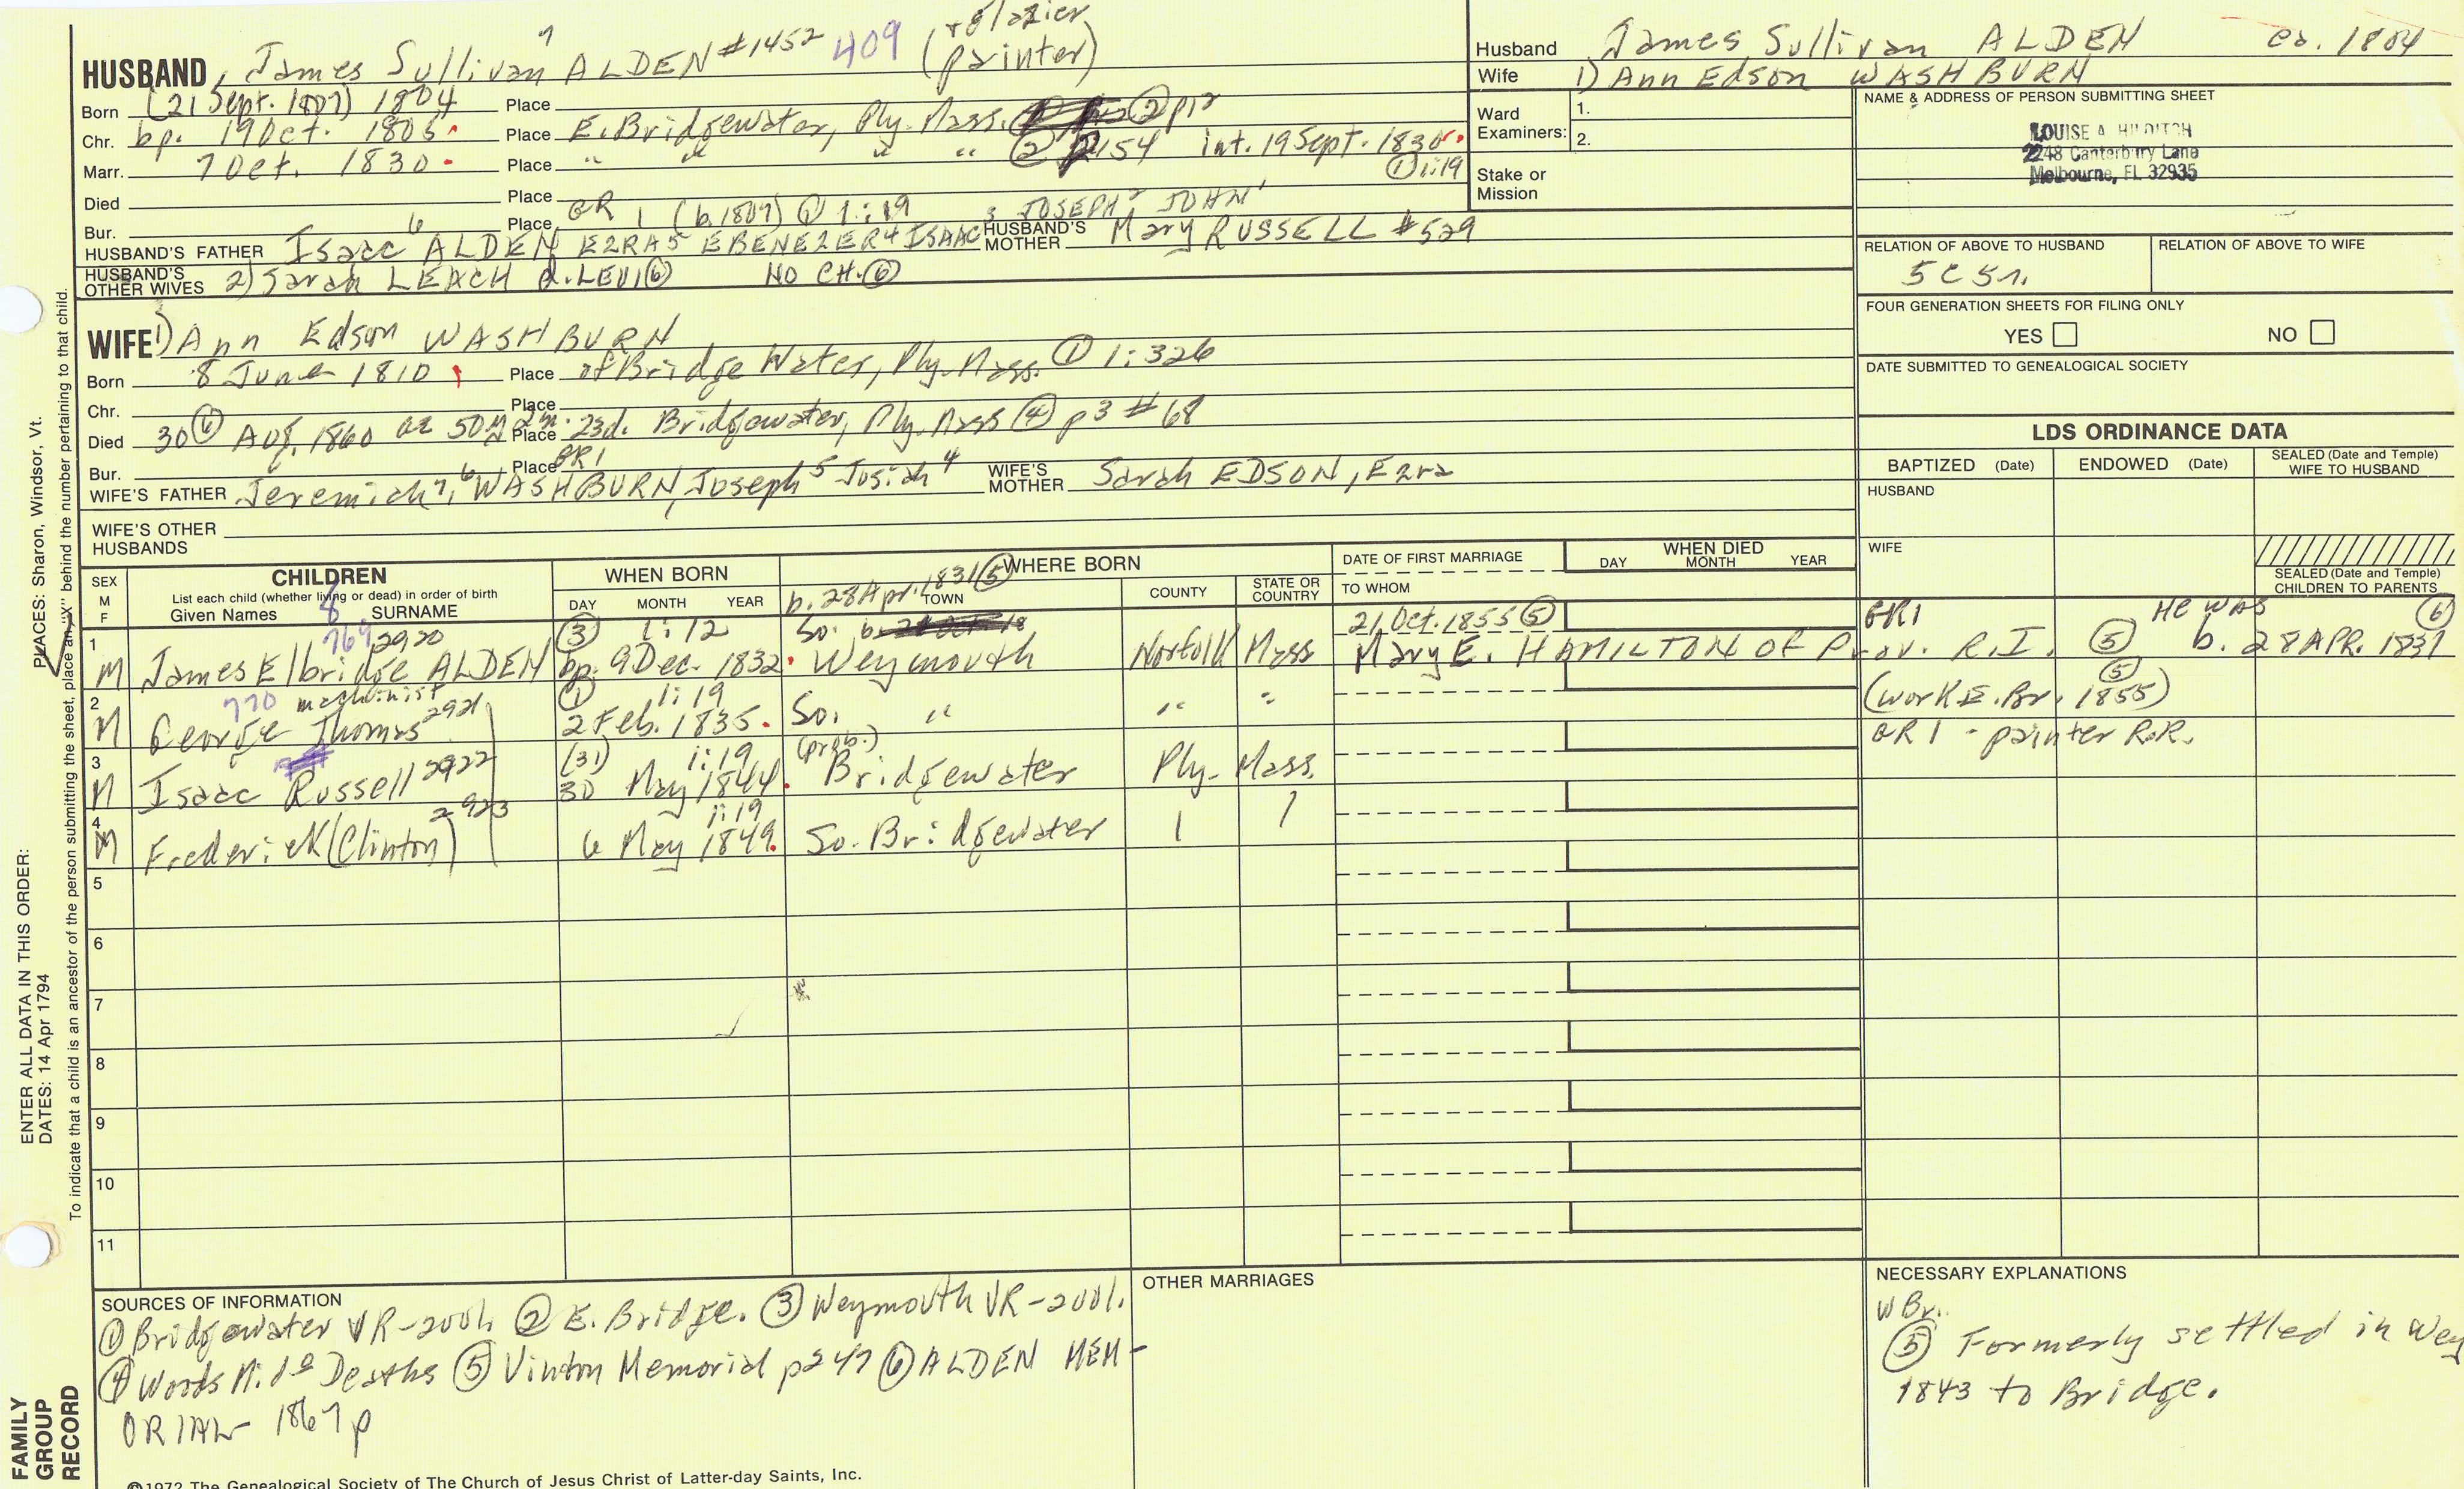 HUSBAND James Sullivan 7 ALDEN #1452 409 (+ Glazier
painter)
Born (21 Sept. 1807) 1804 Place
Chr. bp. 19 Oct. 1806. Place E. Bridgewater, Ply. Mass. ② p12
Marr. 7 Oct. 1830. Place " " " " ② p154 int. 19 Sept. 1830.
① 1:19
Died Place
Bur. Place GR 1 (b. 1807) ① 1:19
HUSBAND'S FATHER Isaac 6 ALDEN EZRA 5 EBENEZER 4 ISAAC 3 JOSEPH 2 JOHN 1
HUSBAND'S MOTHER Mary RUSSELL #529
HUSBAND'S OTHER WIVES 2) Sarah LEACH d. LEVI ⑥ NO CH. ⑥
WIFE 1) Ann Edson WASHBURN
Born 8 June 1810 Place of Bridge Water, Ply. Mass. ① 1:326
Chr. Place
Died 30 ⑥ Aug. 1860 ae 50y 2m. 23d. Place Bridgewater, Ply. Mass ④ p3 #68
Bur. Place GR1
WIFE'S FATHER Jeremiah 7, 6 WASHBURN, Joseph 5 Josiah 4 WIFE'S MOTHER Sarah EDSON, Ezra
WIFE'S OTHER HUSBANDS
Husband James Sullivan ALDEN ca. 1804
Wife 1) Ann Edson WASHBURN
Ward Examiners: 1.
2.
Stake or Mission
NAME & ADDRESS OF PERSON SUBMITTING SHEET
LOUISE A HILDITCH
2248 Canterbury Lane
Melbourne, FL 32935
RELATION OF ABOVE TO HUSBAND RELATION OF ABOVE TO WIFE
5C5r.
FOUR GENERATION SHEETS FOR FILING ONLY
YES NO
DATE SUBMITTED TO GENEALOGICAL SOCIETY
LDS ORDINANCE DATA
BAPTIZED (Date) ENDOWED (Date) SEALED (Date and Temple) WIFE TO HUSBAND
HUSBAND
WIFE
SEALED (Date and Temple) CHILDREN TO PARENTS
SEX M F
CHILDREN
List each child (whether living or dead) in order of birth
Given Names 8 SURNAME
WHEN BORN
DAY MONTH YEAR
b. 28 Apr. 1831 ⑤
WHERE BORN
TOWN COUNTY STATE OR COUNTRY
DATE OF FIRST MARRIAGE
TO WHOM
WHEN DIED
DAY MONTH YEAR
769 2920 ③ 1:12 So. 21 Oct. 1855 ⑤ GR1 HE WAS ⑥
1 M James Elbridge ALDEN bp. 9 Dec. 1832. Weymouth Norfolk Mass Mary E. HAMILTON OF Prov. R.I. ⑤ b. 28 APR. 1831
770 machinist 2921 ① 1:19 (work E. Br. 1855) ⑤
2 M George Thomas 2 Feb. 1835. So. " " "
2922 (31) 1:19 (prob.) GR1 - painter R.R.
3 M Isaac Russell 30 May 1844. Bridgewater Ply. Mass.
2923 1:19
4 M Frederick (Clinton) 6 May 1849. So. Bridgewater
5
6
7
8
9
10
11
SOURCES OF INFORMATION
① Bridgewater VR-2vol. ② E. Bridge. ③ Weymouth VR-2vol.
④ Woods Deaths ⑤ Vinton Memorial p247 ⑥ ALDEN MEM-
ORIAL 1867 p
OTHER MARRIAGES
NECESSARY EXPLANATIONS
W Br.
⑤ Formerly settled in Wey
1843 to Bridge.
©1972 The Genealogical Society of The Church of Jesus Christ of Latter-day Saints, Inc.
FAMILY GROUP RECORD
ENTER ALL DATA IN THIS ORDER:
DATES: 14 Apr 1794
PLACES: Sharon, Windsor, Vt.
To indicate that a child is an ancestor of the person submitting the sheet, place an "X" behind the number pertaining to that child.